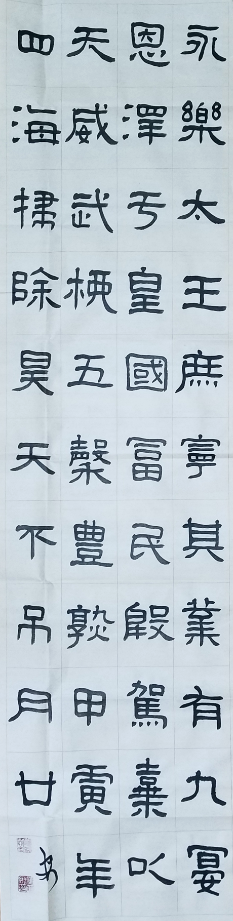 永樂太王庶寧其業有九宴
恩澤于皇國富民殷駕棄以
天威武五穀豊熟甲寅年
四海掃除昊天不吊月廿